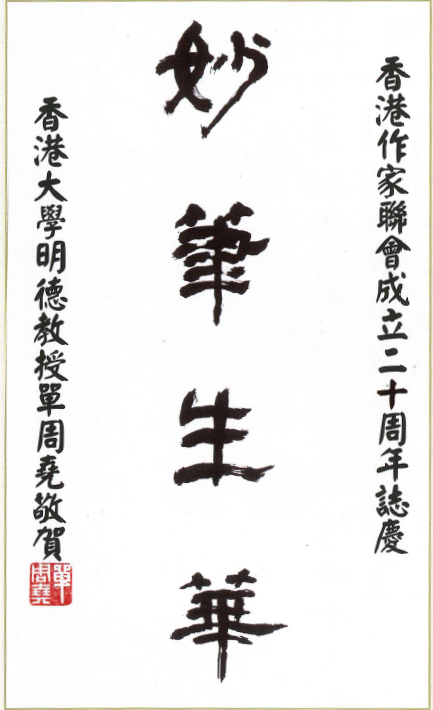 香港作家聯會成立二十周年誌慶
妙筆生華
香港大學明德教授單周堯敬賀
單周堯